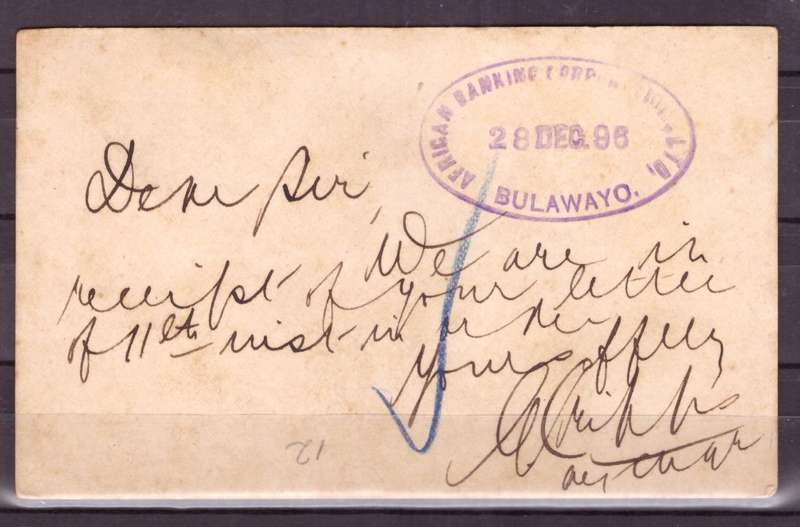 AFRICAN BANKING CORPORATION LTD,
28 DEC. 96
BULAWAYO.
Dear Sir,
We are in
receipt of your letter
of 11th inst in order
Yours ffully
12